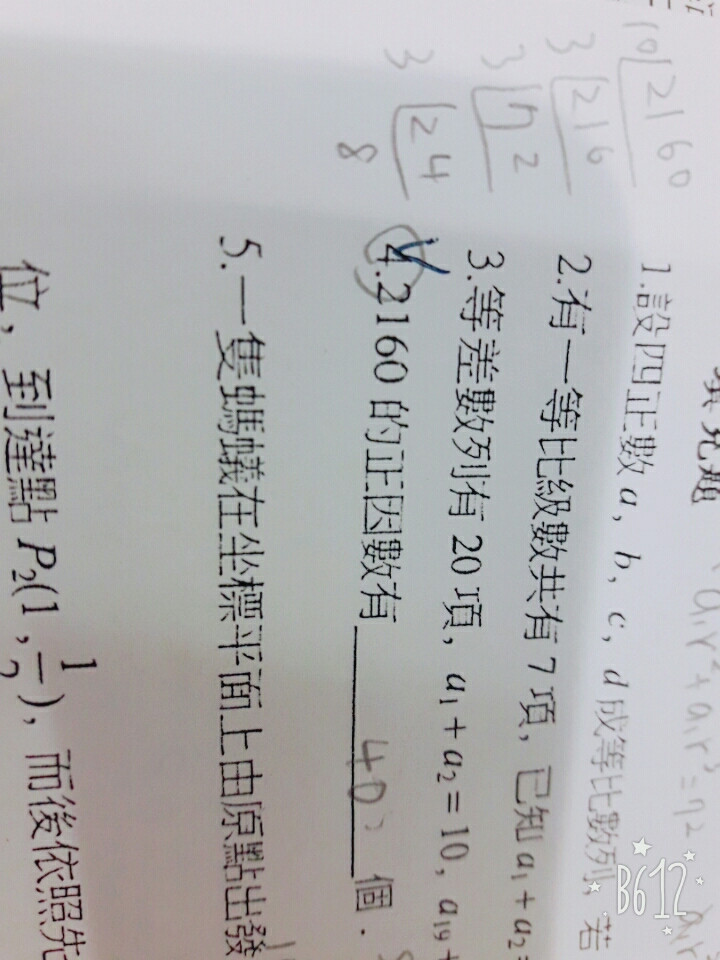 a₁r²+a₁r³=72
1.設四正數 a, b, c, d 成等比數列, 若
2.有一等比級數共有 7 項, 已知 a₁ + a₂ =
3.等差數列有 20 項, a₁ + a₂ = 10, a₁₉ +
4.2160 的正因數有 40 個.
5.一隻螞蟻在坐標平面上由原點出發
位, 到達點 P₂(1, 1/2), 而後依照先
10 2160
3 216
3 72
3 24
8
B612